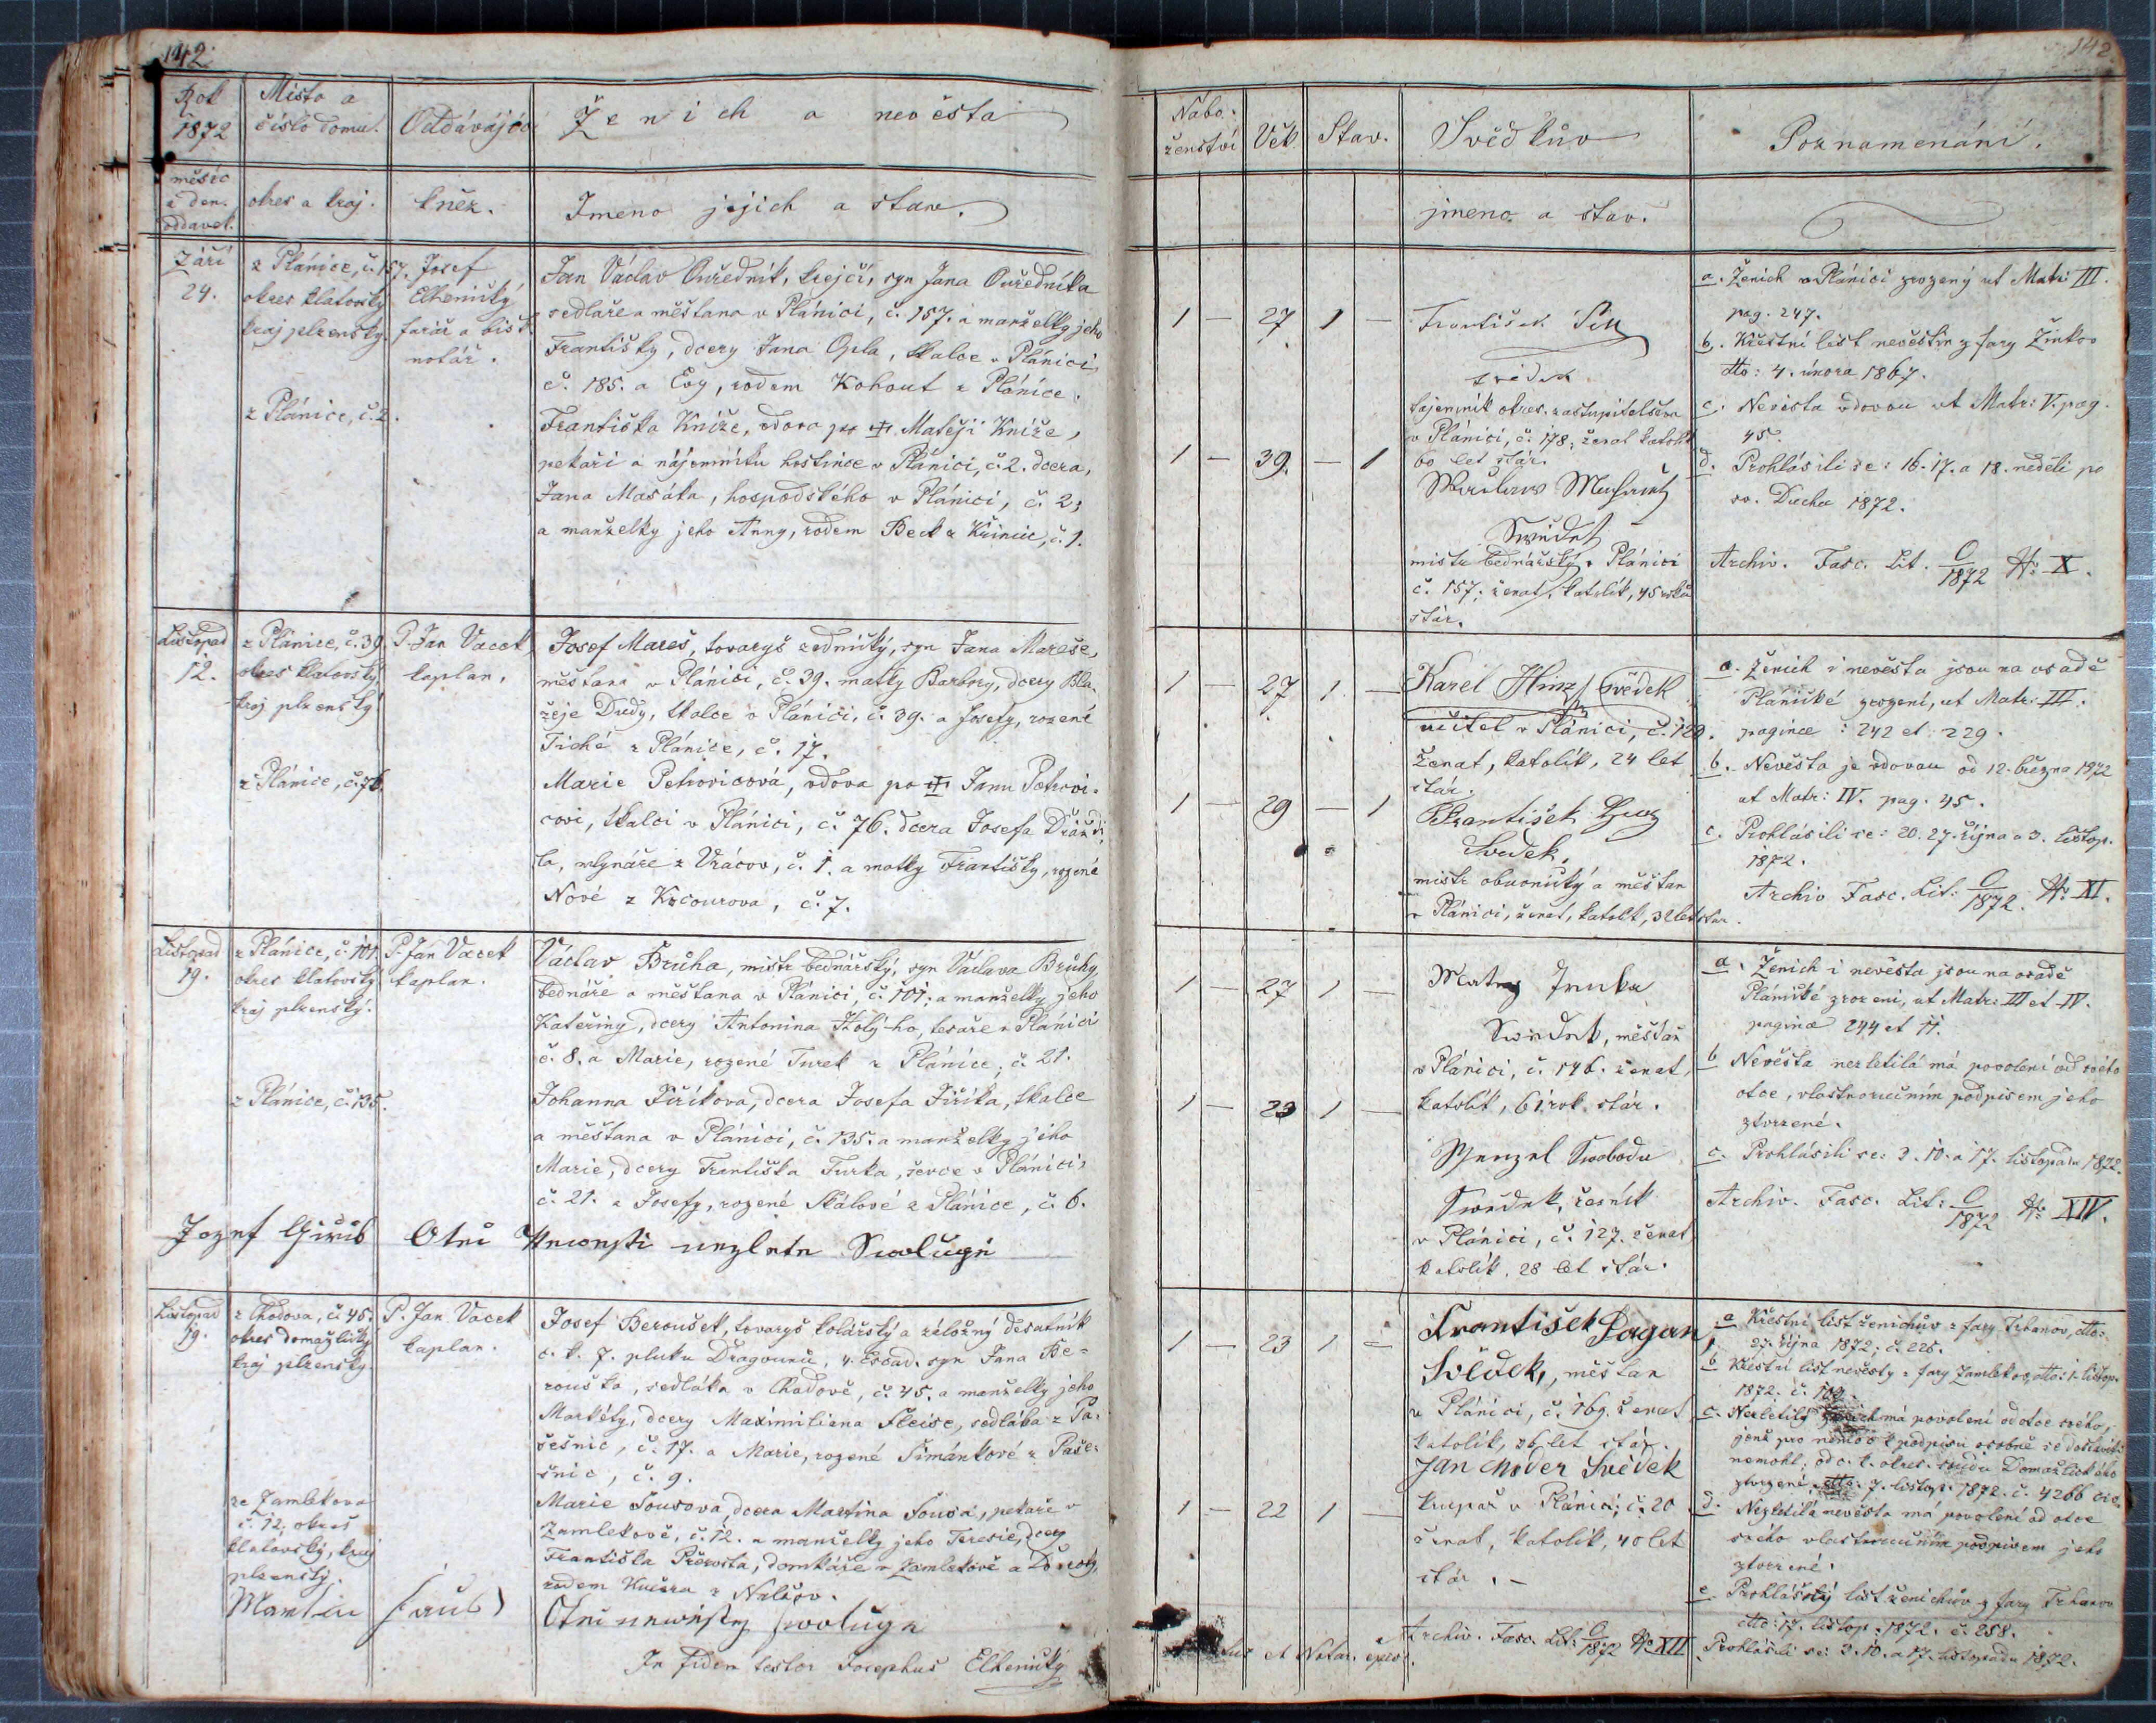 142.
Rok
1872
Místo a
číslo domu.
Oddávající
Ženich a nevěsta
měsíc
a den.
oddavek.
okres a kraj.
kněz.
Jmeno jejich a stav.
Září
24.
z Plánice, č. 157.
okres klatovský
kraj plzenský.
z Plánice, č. 2.
Josef
Elhenický,
farář a bisk.
notář.
Jan Václav Ouředník, krejčí, syn Jana Ouředníka
sedláře a měštana v Plánici, č. 157. a manželky jeho
Františky, dcery Jana Opla, tkalce v Plánici
č. 185. a Evy, rodem Kohout z Plánice.
Františka Kníže, vdova po Matěji Kníže,
pekaři a nájemníku hostince v Plánici, č. 2. dcera,
Jana Masáka, hospodského v Plánici, č. 2;
a manželky jeho Anny, rodem Beck z Křinic, č. 1.
Listopad
12.
z Plánice, č. 39.
okres klatovský
kraj plzenský
z Plánice, č. 76.
P. Jan Vacek
kaplan,
Josef Mareš, tovaryš zednický, syn Jana Mareše,
měštana v Plánici, č. 39. matky Barbory, dcery Bla-
žeje Dudy, tkalce v Plánici, č. 39. a Josefy, rozené
Tiché z Plánice, č. 17.
Marie Petrovicová, vdova po Janu Petrovi-
covi, tkalci v Plánici, č. 76. dcera Josefa
la, mlynáře z Vracov, č. 1. a matky Františky, rozené
Nové z Kocourova, č. 7.
Listopad
19.
z Plánice, č. 101.
okres klatovský
kraj plzenský.
z Plánice, č. 135.
P. Jan Vacek
kaplan.
Václav Brůha, mistr bednářský, syn Václava Brůhy,
bednáře a měštana v Plánici, č. 101; a manželky jeho
Kateřiny, dcery Antonína Holý-ho, tesaře v Plánici
č. 8. a Marie, rozené Turek z Plánice, č. 21.
Johanna Jiříkova, dcera Josefa Jiříka, tkalce
a měštana v Plánici, č. 135. a manželky jeho
Marie, dcery Františka Turka, ševce v Plánici,
č. 21. a Josefy, rozené Skálové z Plánice, č. 6.
Jozef Giřik Otec Newesti Swoluge
Listopad
19.
z Chodova, č. 45.
okres domažlický
kraj plzenský.
ze Zamlekova
č. 12, okres
klatovský, kraj
plzenský.
P. Jan Vacek
kaplan.
Josef Beroušek, tovaryš kolářský a záložný desatník
c. k. 7. pluku Dragounů, 4. Escad. syn Jana Be-
rouška, sedláka v Chodově, č. 45. a manželky jeho
Markéty, dcery Maximiliana Fleisc, sedláka z Pa-
sešnic, č. 17. a Marie, rozené Šimánkové z Paše-
šnic, č. 9.
Marie Sousova, dcera Martina Sousa, pekaře v
Zamlekově, č. 12. a manželky jeho Teresie, dcery
Františka Převosta, domkáře v Zamlekově a Doroty,
rodem Kučera z Nalžov.
Martin Otec newěsty swoluge
In fidem testor Josephus Elhenický
142
Nábo-
ženství
Věk
Stav.
Svědkův
Poznamenání.
jmeno a stav.
1 — 27 1 —
1 — 39. — 1
František
svědek
tajemník okres. zastupitelstva
v Plánici, č. 178; ženat katolík
60 let stár.
Swědek
mistr bednářský v Plánici
č. 157; ženat, katolík, 45 roků
stár.
a. Ženich v Plánici zrozený ut Matr: III.
pag. 247.
b. Křestní list nevěstin z fary Žinkov
dto: 4. února 1867.
c. Nevěsta vdovou ut Matr: V. pag.
45.
d. Prohlásili se: 16. 17. a 18. neděli po
sv. Duchu 1872.
Archiv. Fasc. Lit. C/1872 No X.
1 — 27 1. —
1 — 29 — 1
Karel Hinz, svědek
učitel v Plánici, č. 129.
ženat, katolík, 24 let
stár.
František
Svědek,
mistr obuvnický a měštan
v Plánici, ženat, katolík, 32 let stár.
a. Ženich i nevěsta jsou na osadě
Plánické zrozeni, ut Matr: III.
paginae: 242 et 229.
b. Nevěsta je vdovou od 12. března 1872
ut Matr: IV. pag. 45.
c. Prohlásili se: 20. 27. října a 3. listop.
1872.
Archiv Fasc. Lit: C/1872. No XI.
1 — 27 1 —
1 — 23 1 —
Matěj
Swědek, měštan
v Plánici, č. 146. ženat,
katolík, 61 rok. stár.
Wenzel Swoboda
Swědek, řezník
v Plánici, č. 127. ženat
katolík, 28 let stár.
a. Ženich i nevěsta jsou na osadě
Plánické zrozeni, ut Matr: III et IV.
paginae 244 et 11.
b Nevěsta nezletilá má povolení od svého
otce, vlastnoručním podpisem jeho
stvrzené.
c. Prohlásili se: 3. 10. a 17. listopadu 1872.
Archiv. Fasc. Lit: C/1872 No XIV.
1 — 23 1 —
1 — 22 1 —
František Pagan,
Svědek, měštan
v Plánici, č. 169. ženat
katolík, 36 let stár.
Jan Moder Svědek
krupař v Plánici, č. 20
ženat, katolík, 40 let
stár. —
a Křestní list ženichův z fary Trhanov, dto:
23. října 1872, č. 225.
b Křestní list nevěsty z fary Zamlekov, dto: 1. listop.
1872. č.
c. Nezletilý ženich má povolení od otce svého,
jenž pro nemoc k podpisu osobně se dostaviti
nemohl, od c. k. okres. soudu Domažlického
stvrzené, dto: 7. listop. 1872. č. 4266 civ.
d. Nezletilá nevěsta má povolení od otce
svého vlastnoručním podpisem jeho
stvrzené.
e Prohlášený list ženichův z fary Trhanov
dto: 17. listop. 1872. č. 258.
Archiv. Fasc. Lit: C/1872 No XII
Prohlásili se: 3. 10. a 17. listopadu 1872.
et Notar. episc.